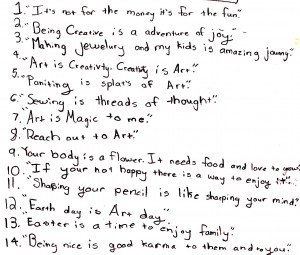 1. "It's not for the money it's for the fun."
2. "Being Creative is a adventure of joy."
3. "Making jewelury and my kids is amazing jouney."
4. "Art is Creativty. Creativty is Art."
5. "Paniting is splats of Art."
6. "Sewing is threads of thought."
7. "Art is Magic to me."
8. "Reach out to Art."
9. "Your body is a flower. It needs food and love to grow."
10. "If your not happy there is a way to enjoy it."
11. "Shaping your pencil is like sharping your mind."
12. "Earth day is Art day."
13. "Easter is a time to enjoy family."
14. "Being nice is good karma to them and to you."